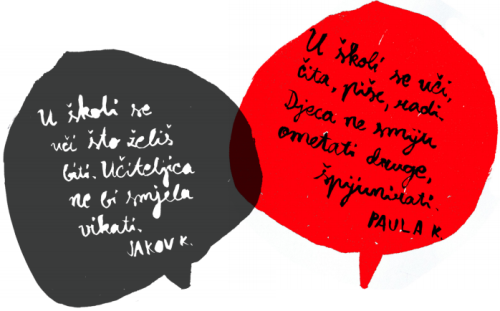 U školi se
uči što želiš
biti. Učiteljica
ne bi smjela
vikati.
JAKOV K.
U školi se uči,
čita, piše, radi.
Djeca ne smiju
ometati druge,
špijunirati.
PAULA K.